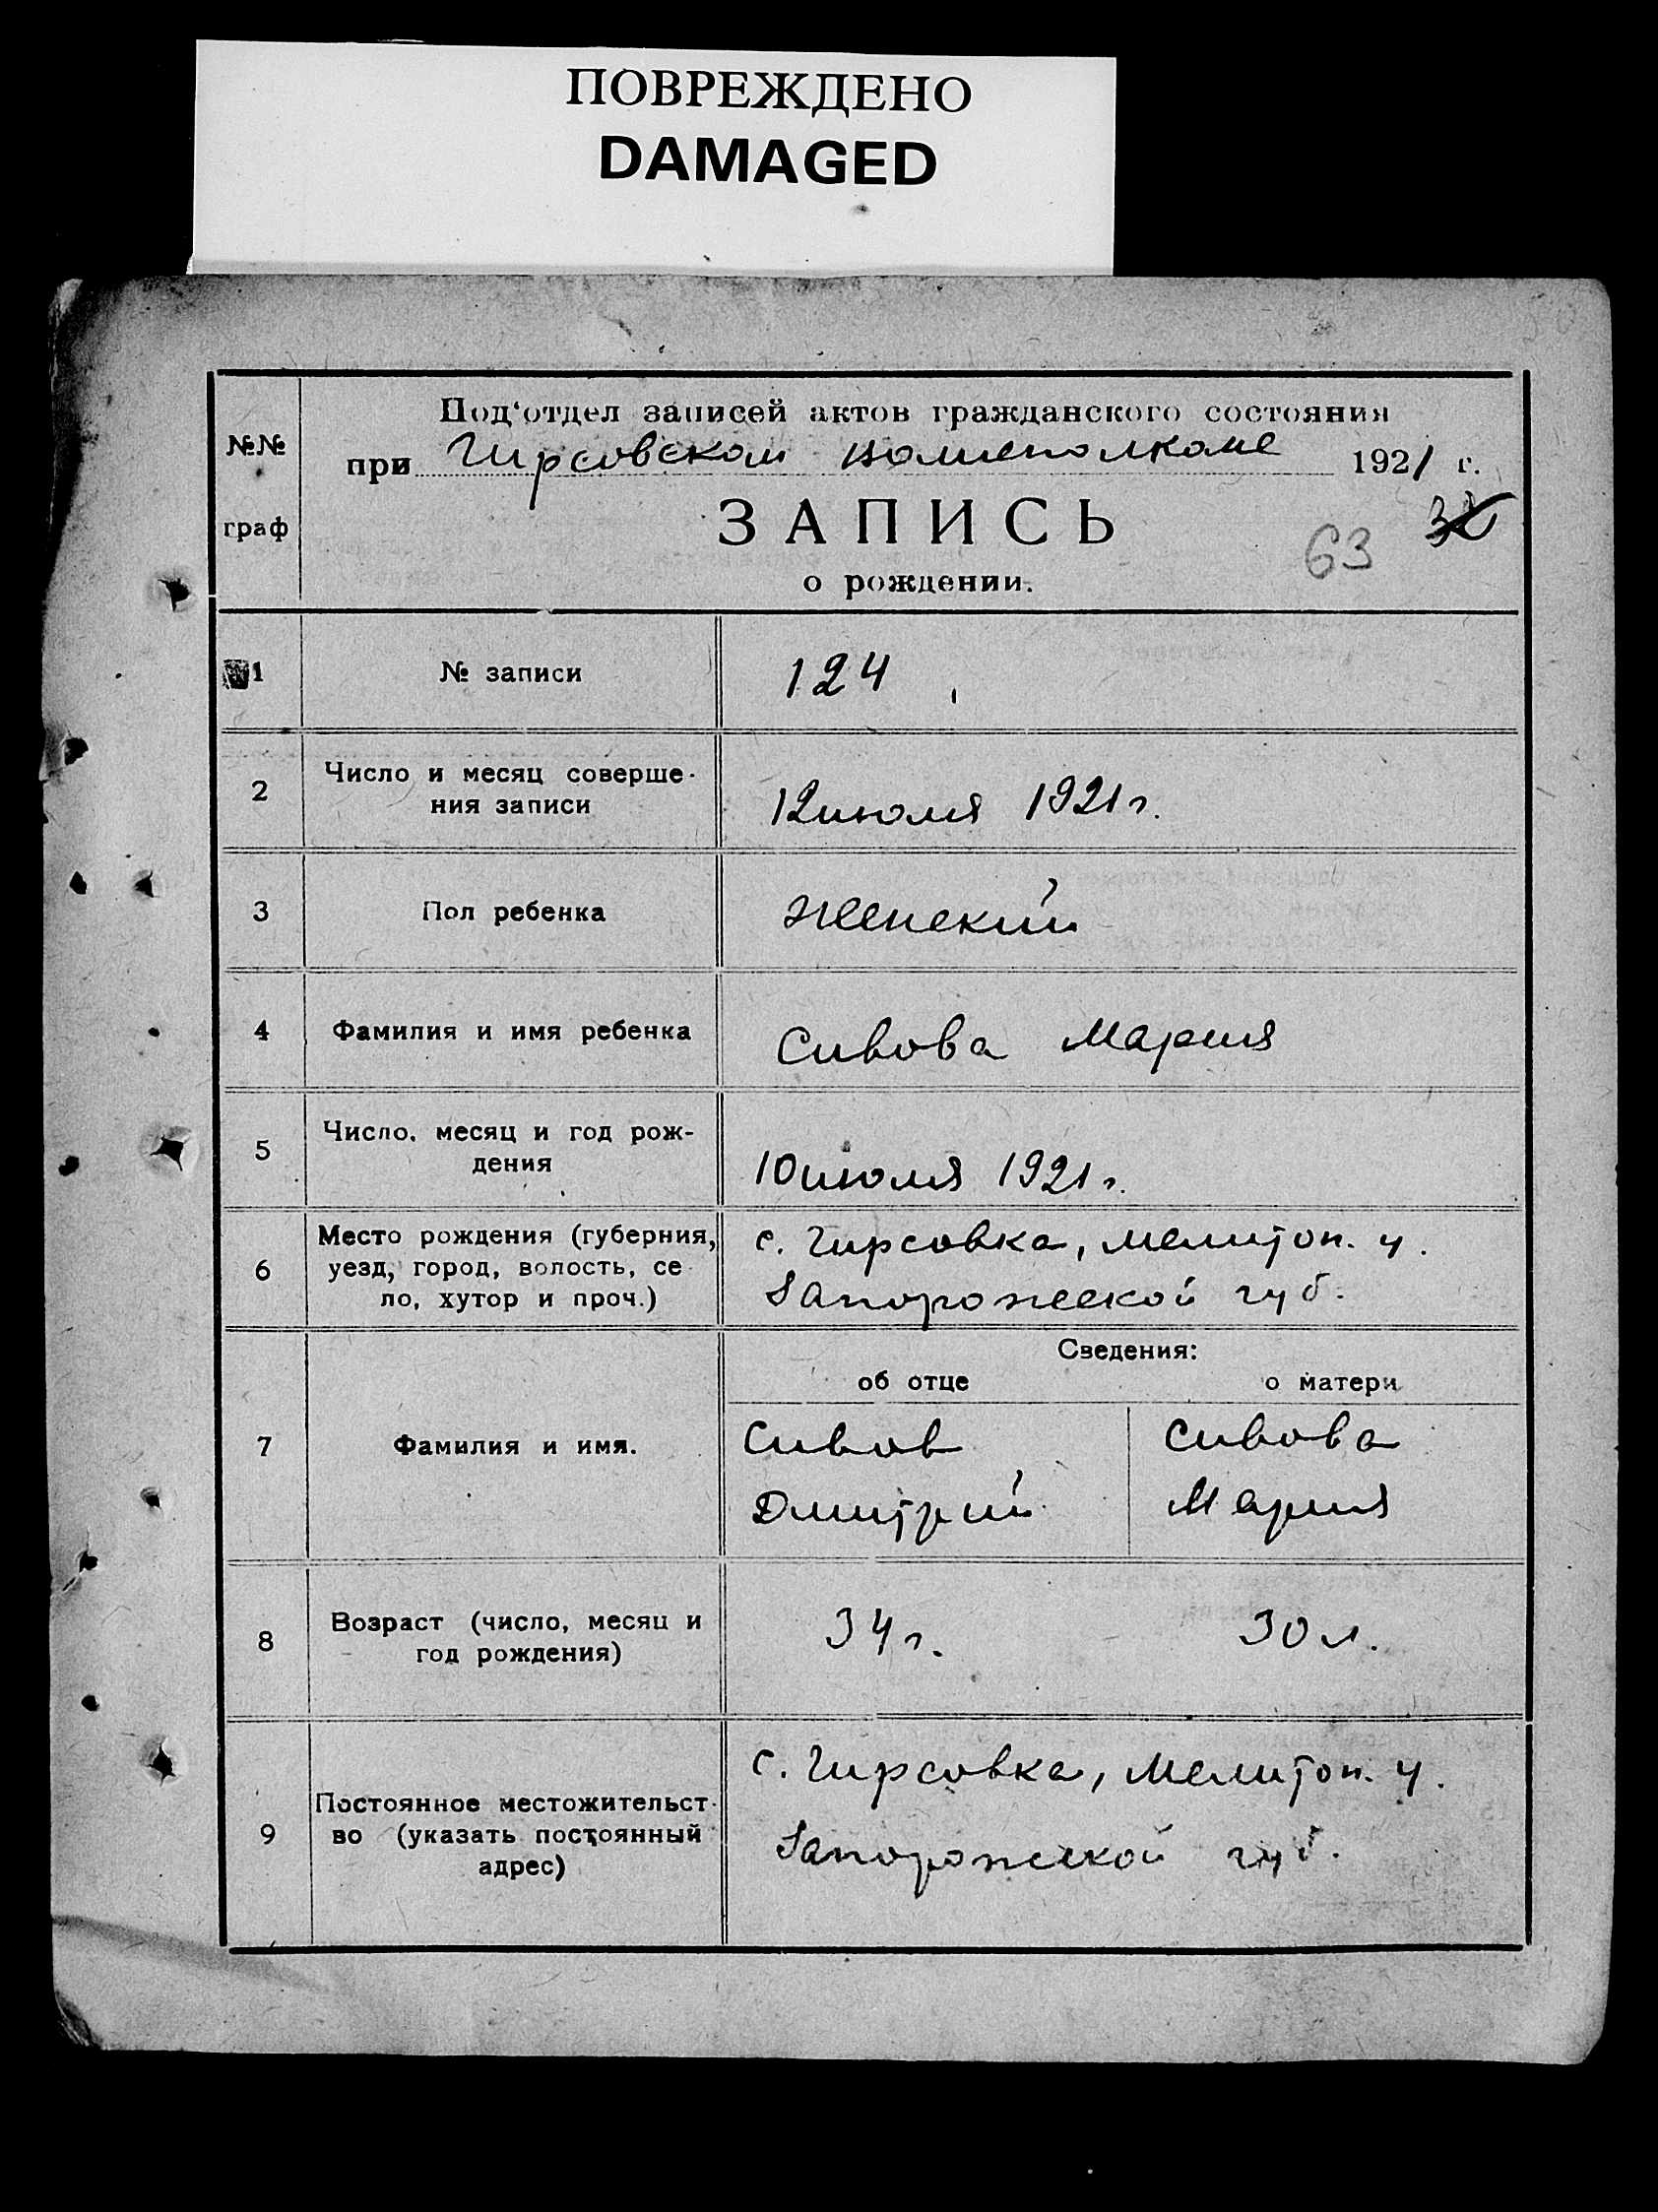 ПОВРЕЖДЕНО
DAMAGED
Под'отдел записей актов гражданского состояния
№№
при Гирсовском волисполкоме 1921 г.
граф
ЗАПИСЬ
63
о рождении.
1 № записи 124
2 Число и месяц соверше-
ния записи 12 июля 1921 г.
3 Пол ребенка женский
4 Фамилия и имя ребенка Сивова Мария
5 Число, месяц и год рож-
дения 10 июля 1921 г.
6 Место рождения (губерния, с. Гирсовка, Мелитоп. у.
уезд, город, волость, се-
ло, хутор и проч.) Запорожской губ.
Сведения:
об отце о матери
7 Фамилия и имя. Сивов Сивова
Дмитрий Мария
8 Возраст (число, месяц и 34 г. 30 л.
год рождения)
с. Гирсовка, Мелитоп. у.
9 Постоянное местожительст-
во (указать постоянный Запорожской губ.
адрес)